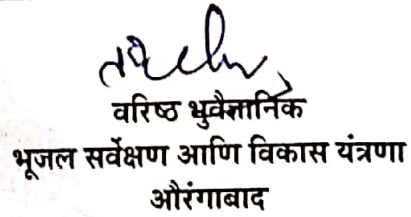 वरिष्ठ भुवैज्ञानिक
भूजल सर्वेक्षण आणि विकास यंत्रणा
औरंगाबाद